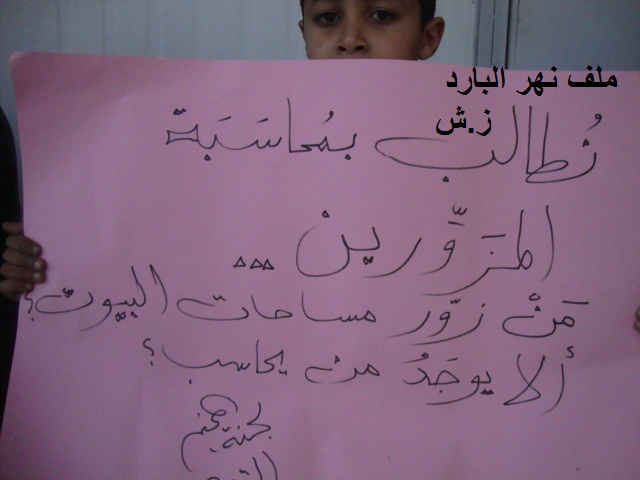 ملف نهر البارد
ز.ش
نُطالب بمُحاسَبَة
المُزَوِّرين ...
مَنْ زوّر مساحات البيوت؟
ألا يوجَدُ من يحاسب؟
لجنة